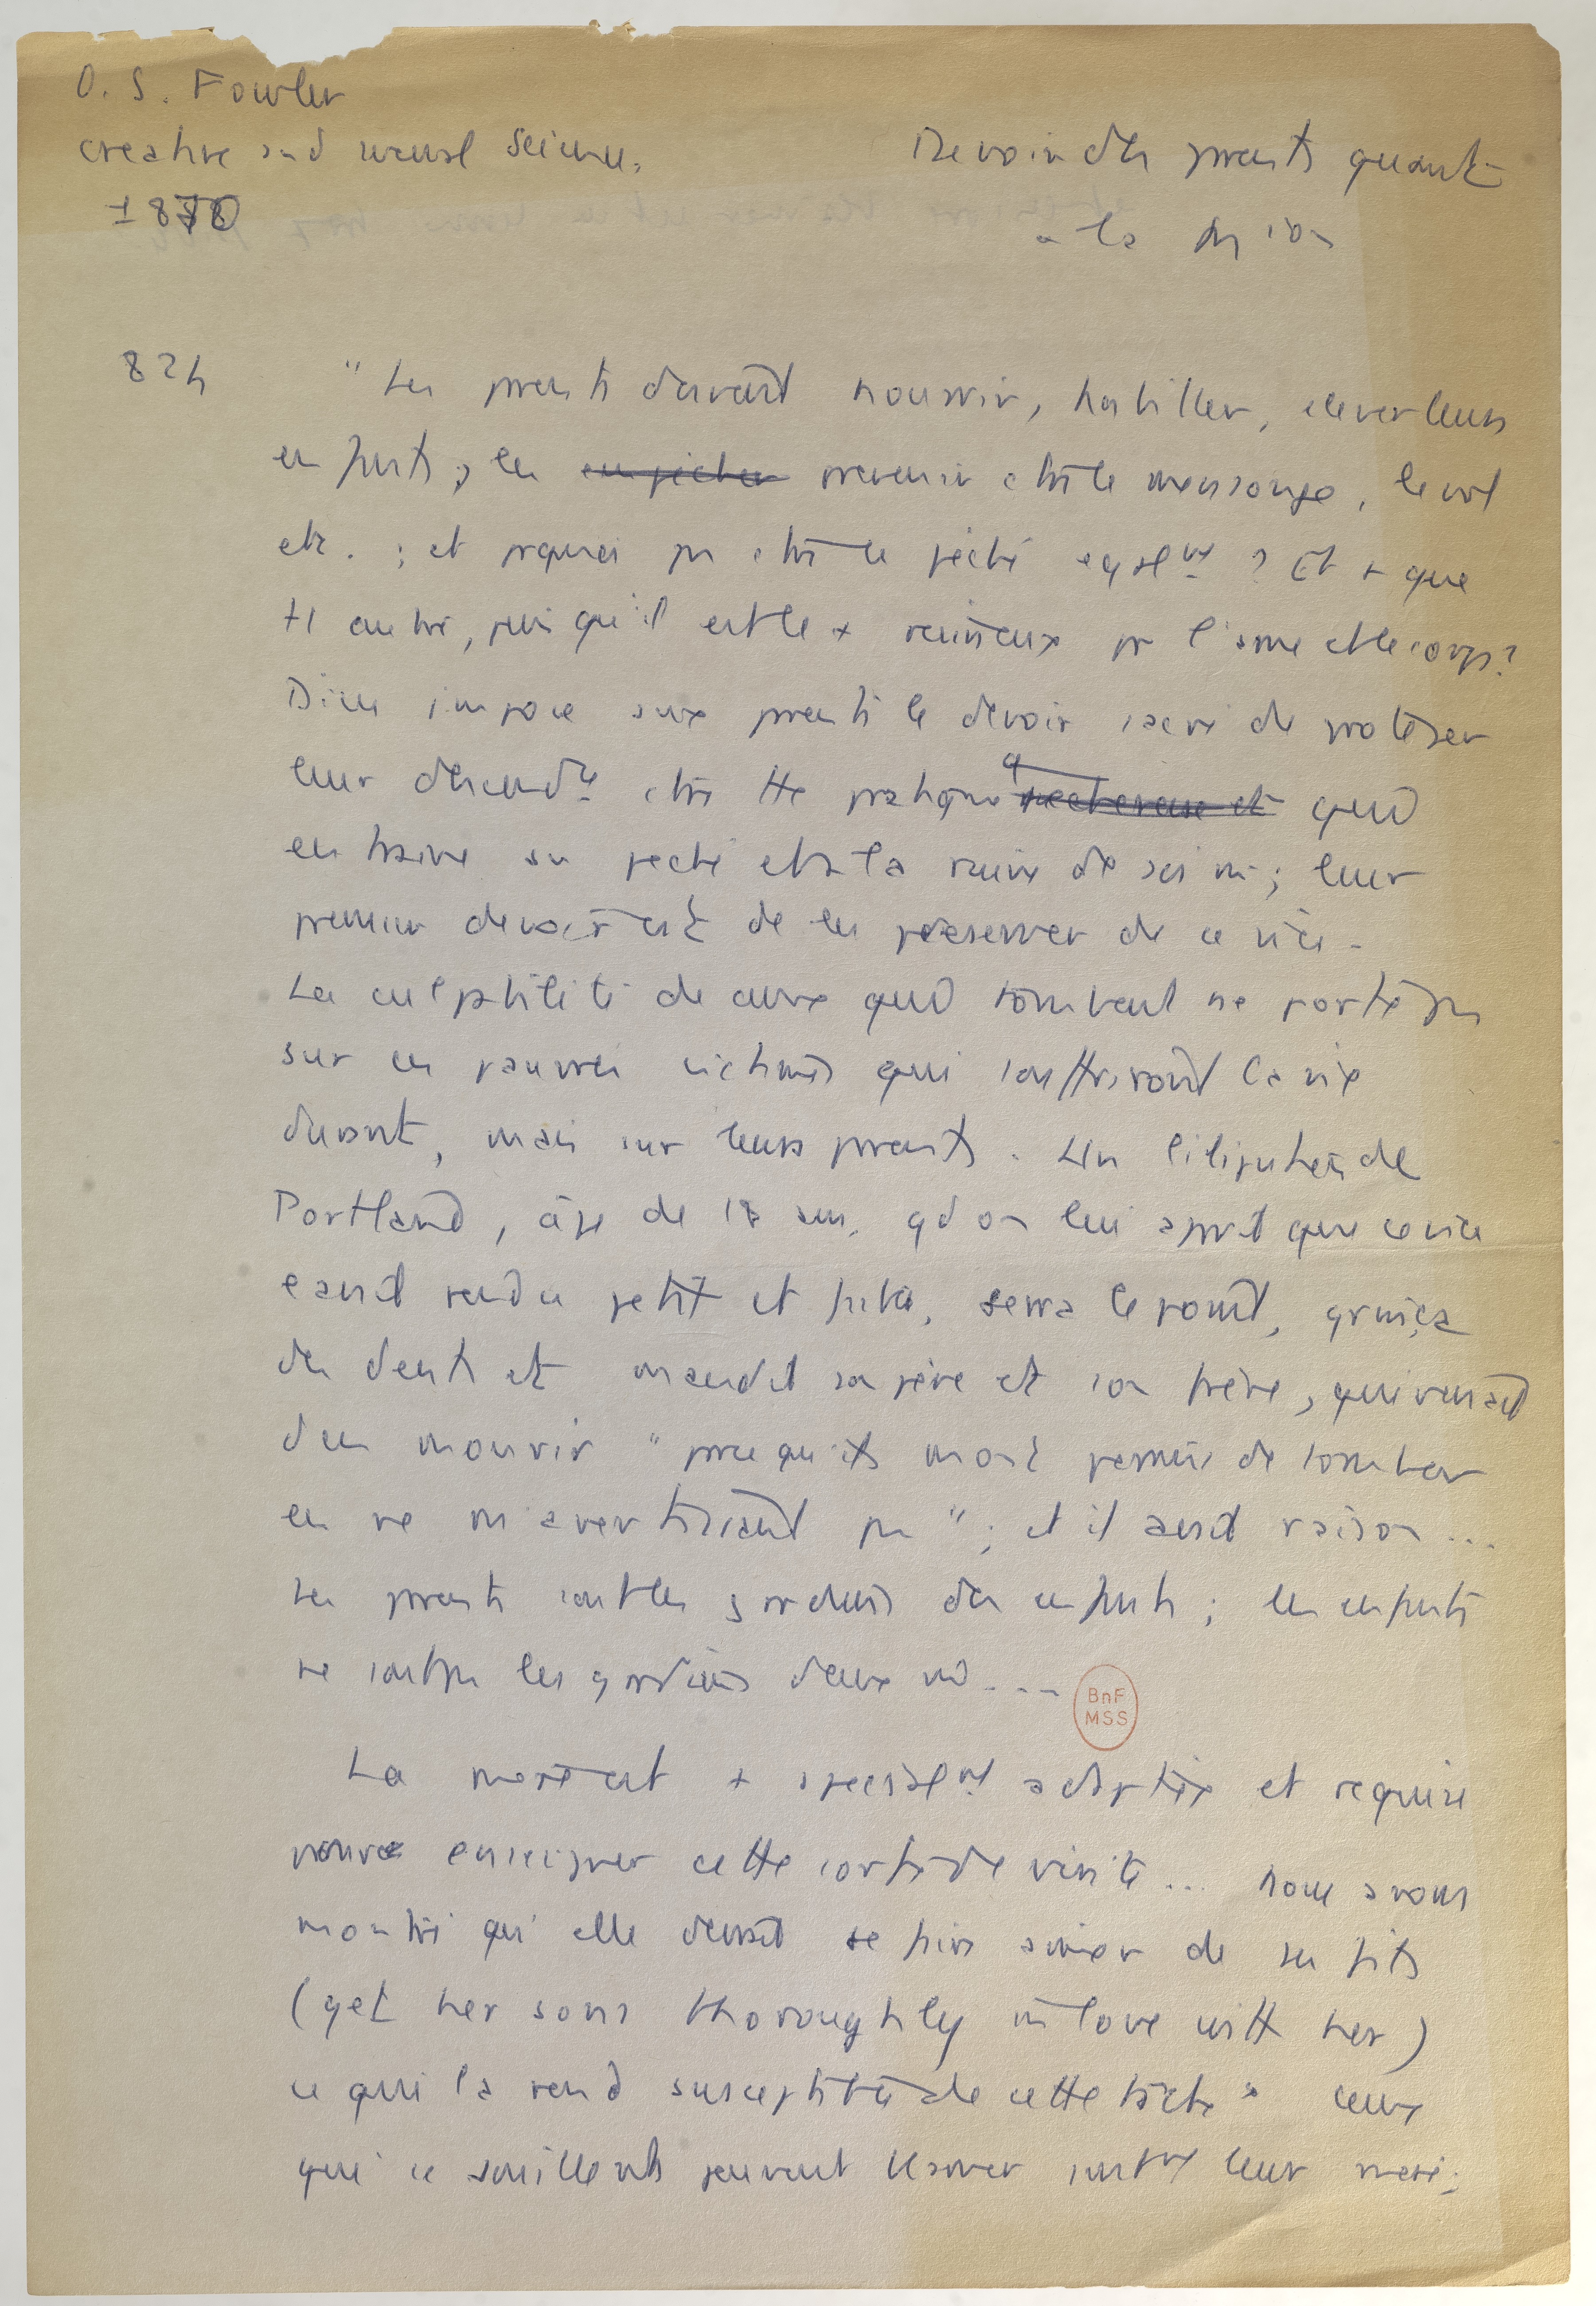 O. S. Fowler
creative and sexual science.
1870
Devoir des parents quant
a la m ion
824
"Les parents doivent nourrir, habiller, elever leurs
enfants ; les empecher prevenir ctre le mensonge, le vol
etc. ; et pquoi pas ctre le péché egalt ? Et + que
tt autre, puisqu'il est le + ruineux pr l'ame et le corps ?
Dieu impose aux parents le devoir sacré de protéger
leur descendce ctre tte pratique pecheresse et qui
entraine au peché et à la ruine de soi m ; leur
premier devoir est de les préserver de ce vice.
La culpabilité de ceux qui tombent ne porte pas
sur ces pauvres victimes qui souffriront la vie
durant, mais sur leurs parents. Un liliputien de
Portland, âgé de 18 ans, qd on lui apprit que ce vice
l'avait rendu petit et faible, serra le poing, grinça
des dents et maudit son père et son frère, qui venait
d'en mourir "parce qu'ils m'ont permis de tomber
en ne m'avertissant pas" ; et il avait raison...
Les parents sont les gardiens des enfants ; les enfants
ne sont pas les gardiens d'eux m...
BnF
MSS
La mère est + specialt adaptée et requise
pour enseigner cette sorte de vérité... nous avons
montré qu'elle devait se faire aimer de ses fils
(get her sons thoroughly in love with her)
ce qui la rend susceptible de cette tâche. Ceux
qui se souillent peuvent blamer surtt leur mère ;